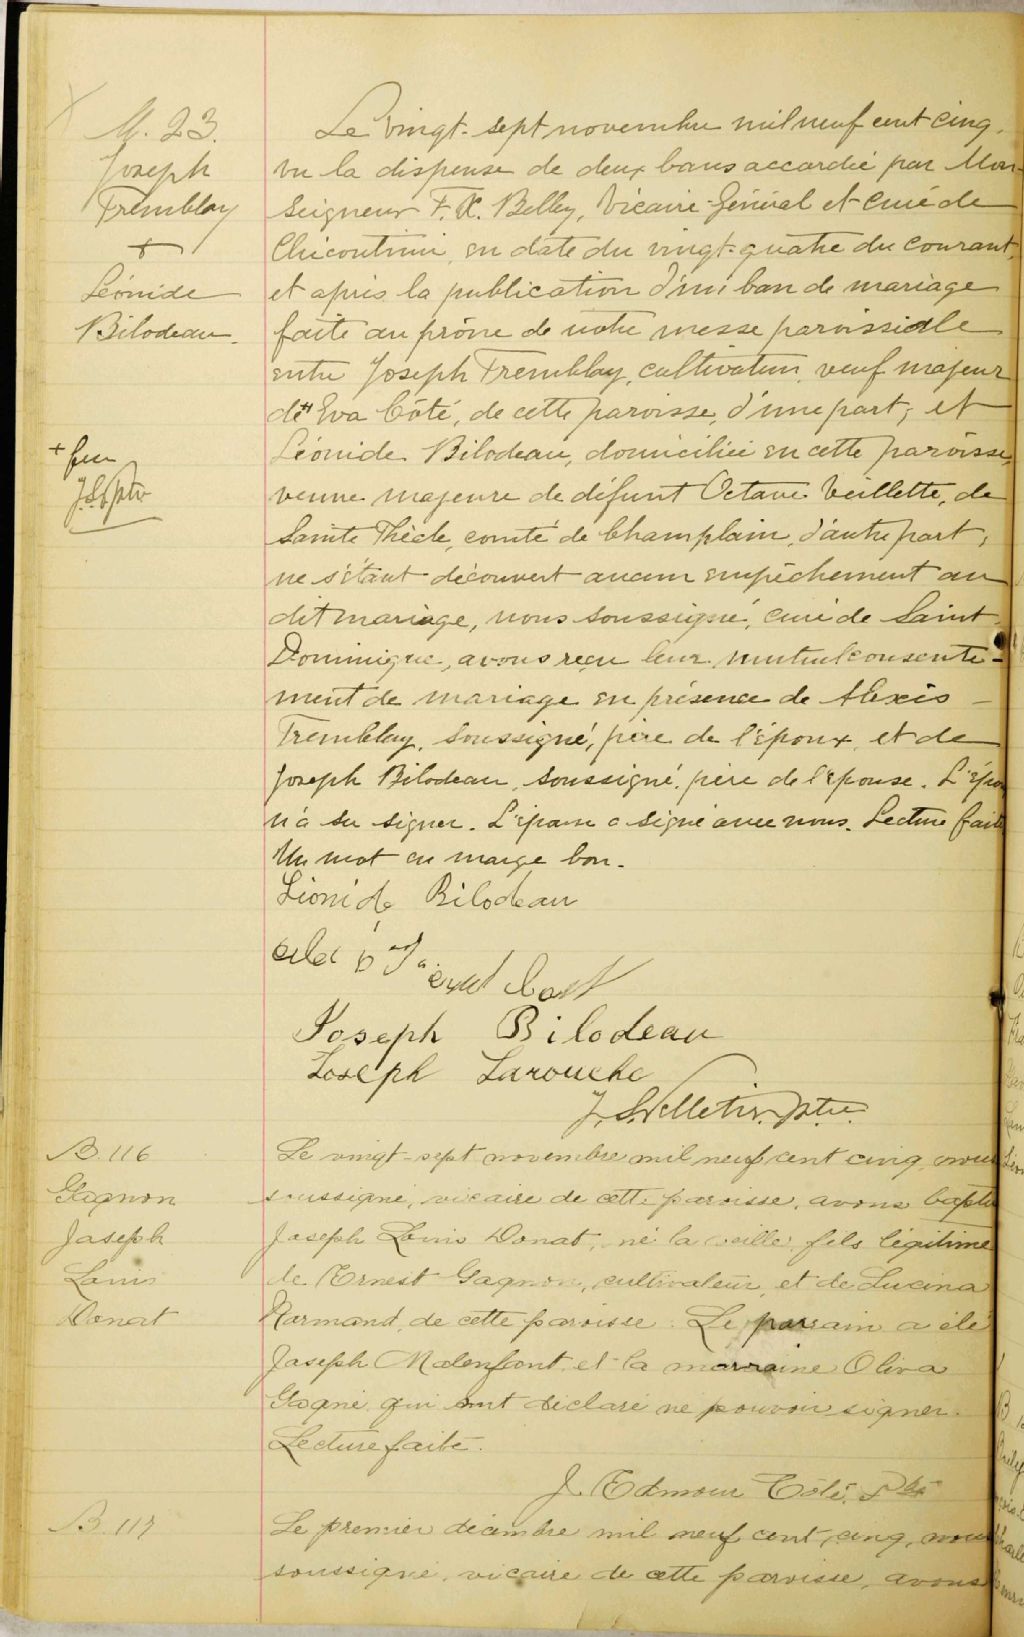 M. 23.
Joseph
Tremblay
+
Léonide
Bilodeau.
+ feu
Le vingt-sept novembre mil neuf cent cinq,
vu la dispense de deux bans accordée par Mon-
seigneur F. X. Belley, Vicaire-Général et Curé de
Chicoutimi, en date du vingt-quatre du courant,
et après la publication d'un ban de mariage
faite au prône de notre messe paroissiale
entre Joseph Tremblay, cultivateur, veuf majeur
de + Eva Côté, de cette paroisse, d'une part; et
Léonide Bilodeau, domiciliée en cette paroisse,
veuve majeure de défunt Octave Veillette, de
Sainte Thècle, comté de Champlain, d'autre part;
ne s'étant découvert aucun empêchement au
dit mariage, nous soussigné, curé de Saint
Dominique, avons reçu leur mutuel consente-
ment de mariage en présence de Alexis
Tremblay, soussigné, père de l'époux, et de
Joseph Bilodeau, soussigné, père de l'épouse. L'époux
n'a su signer. L'épouse a signé avec nous. Lecture faite
Un mot en marge bon.
Léonide Bilodeau
Joseph Bilodeau
Joseph Larouche
J. S. Pelletier, Ptre.
B. 116
Gagnon
Joseph
Louis
Donat
Le vingt-sept novembre mil neuf cent cinq, nous
soussigné, vicaire de cette paroisse, avons baptisé
Joseph Louis Donat, né la veille, fils légitime
de Ernest Gagnon, cultivateur, et de Lucina
Normand, de cette paroisse. Le parrain a été
Joseph Malenfant et la marraine Oliva
Gagné qui ont déclaré ne pouvoir signer.
Lecture faite.
J. Edmour Côté, Ptre
B. 117
Le premier décembre mil neuf cent cinq, nous
soussigné, vicaire de cette paroisse, avons